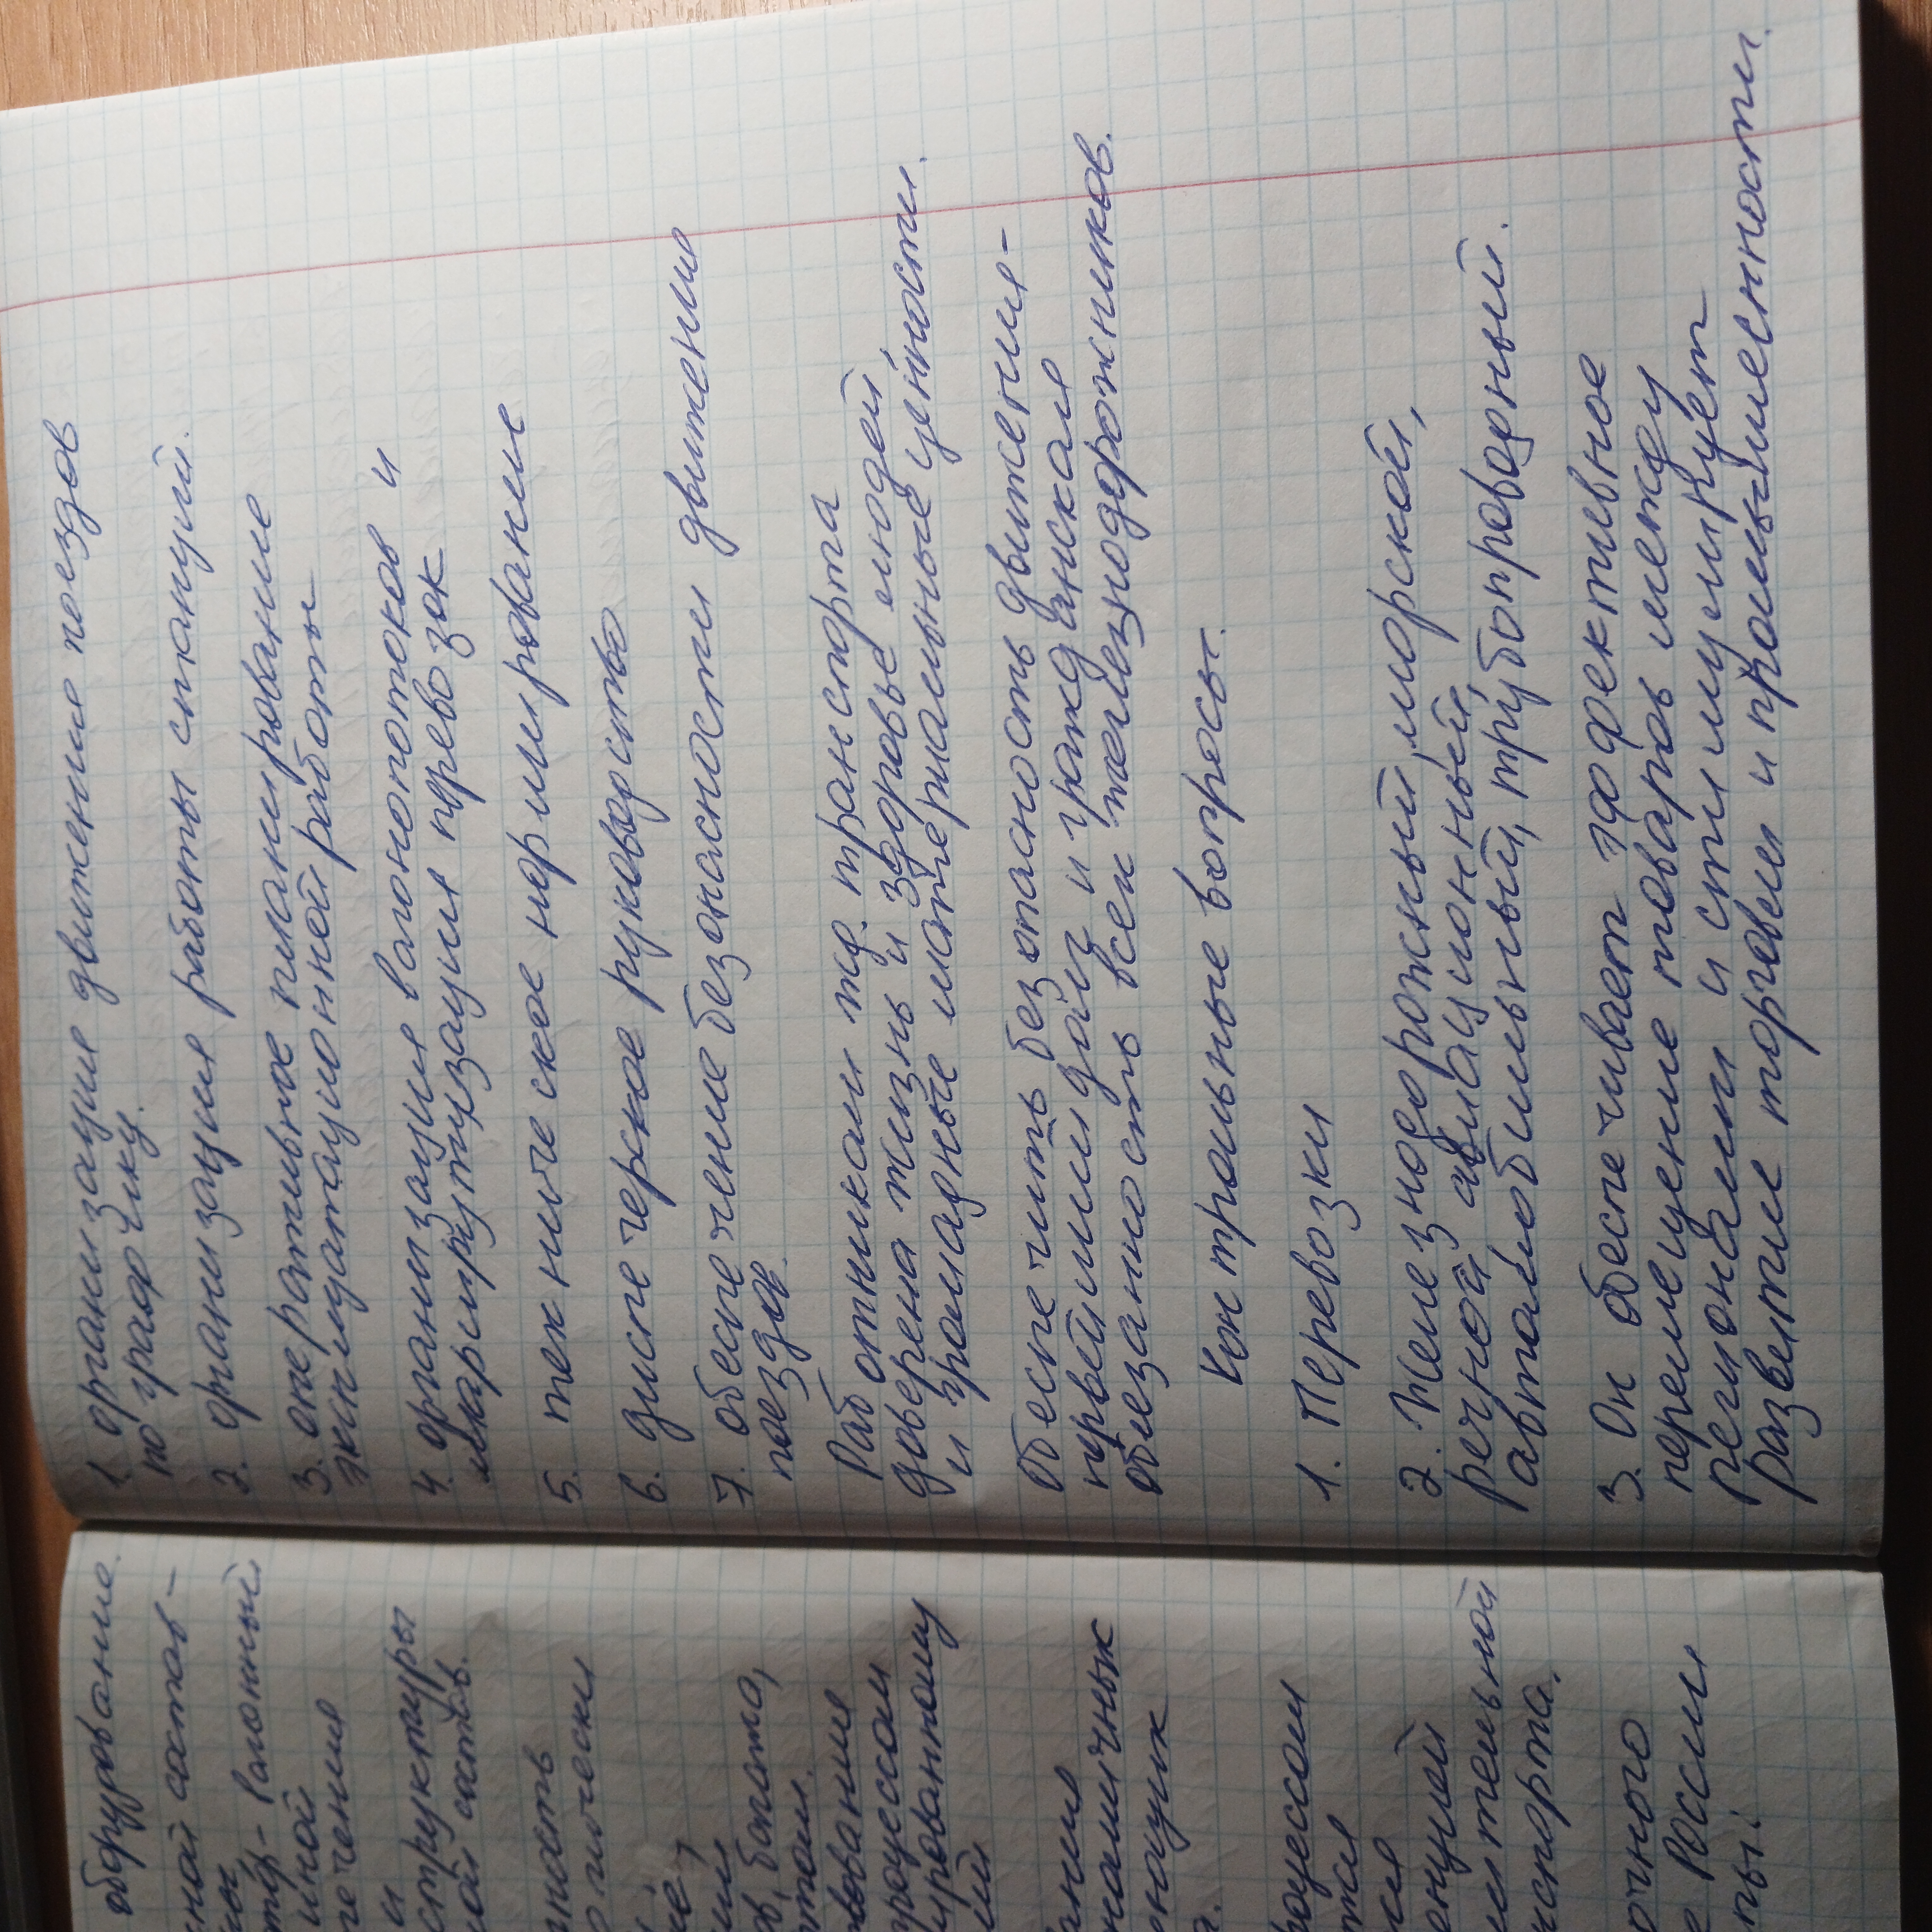 оборудование.
ной состав-
вагонный
чения
и
структуры
состав.
ность
ования
роцессом
ированному
ания
номичных
наук
роцессом
ительной
нспорта.
очного
России
1. организация движения поездов
по графику.
2. организация работы станций.
3. оперативное планирование
эксплуатационной работы
4. организация вагонопотоков и
маршрутизация перевозок
5. техническое нормирование
6. диспетчерское руководство
7. обеспечение безопасности движения
поездов.
Работникам жд. транспорта
доверена жизнь и здоровье людей
и громадные материальные ценности.
Обеспечить безопасность движения -
первейший долг и гражданская
обязанность всех железнодорожников.
Контрольные вопросы.
1. Перевозки
2. Железнодорожный, морской,
речной, авиационный,
автомобильный, трубопроводный.
3. Он обеспечивает эффективное
перемещение товаров между
регионами и стимулирует
развитие торговли и промышленности.